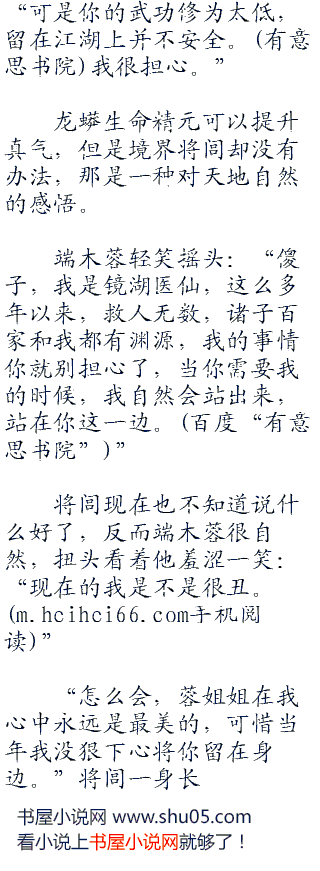 “可是你的武功修为太低，
留在江湖上并不安全。(有意
思书院)我很担心。”
龙蟒生命精元可以提升
真气，但是境界将闾却没有
办法，那是一种对天地自然
的感悟。
端木蓉轻笑摇头：“傻
子，我是镜湖医仙，这么多
年以来，救人无数，诸子百
家和我都有渊源，我的事情
你就别担心了，当你需要我
的时候，我自然会站出来，
站在你这一边。(百度“有意
思书院”)”
将闾现在也不知道说什
么好了，反而端木蓉很自
然，扭头看着他羞涩一笑：
“现在的我是不是很丑。
(m.hcihci66.com手机阅
读)”
“怎么会，蓉姐姐在我
心中永远是最美的，可惜当
年我没狠下心将你留在身
边。”将闾一身长
书屋小说网 www.shu05.com
看小说上书屋小说网就够了！